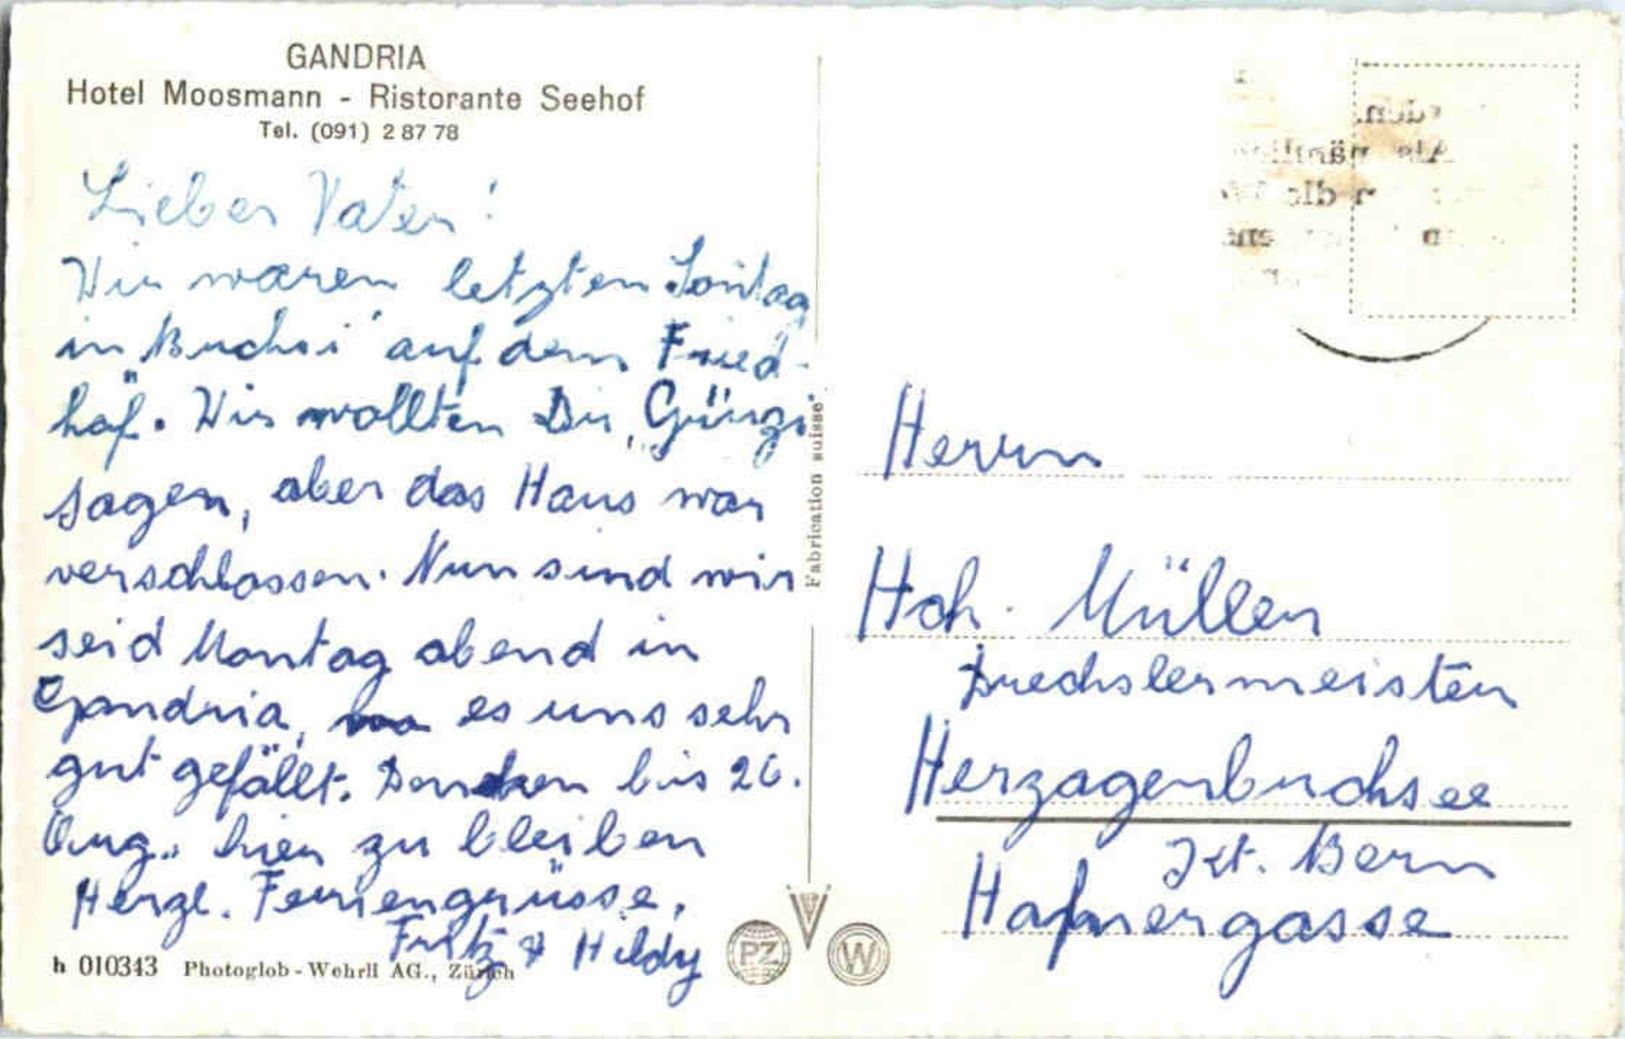 GANDRIA
Hotel Moosmann - Ristorante Seehof
Tel. (091) 2 87 78
Lieber Vater!
Wir waren letzten Sontag
in Buchsi auf dem Fried-
hof. Wir wollten Dir
sagen, aber das Haus war
verschlossen. Nun sind wir
seid Montag abend in
Gandria, es uns sehr
gut gefällt. Denken bis 26.
Aug. hier zu bleiben
Herzl. Feriengrüsse,
Fritz & Hildy
h 010343 Photoglob-Wehrli AG., Zürich
Fabrication suisse
PZ
W
Herrn
Hch. Müller
Drechslermeister
Herzogenbuchsee
Kt. Bern
Hafnergasse